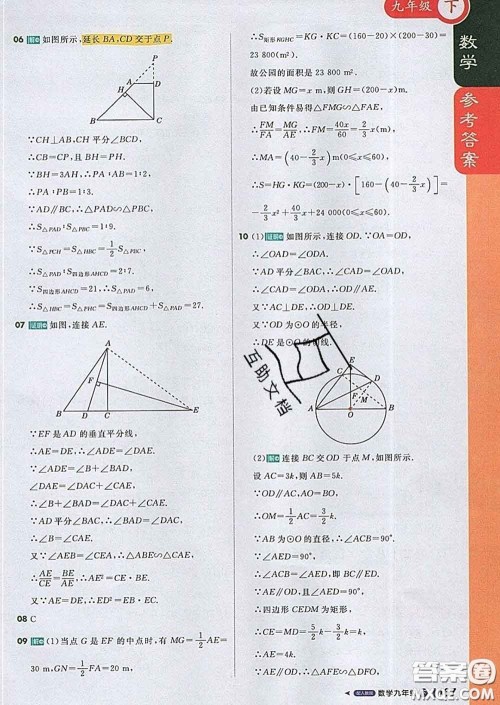 九年级 下
数学
参考答案
06 如图所示,延长BA,CD交于点P.
P
A D
H
B C
∵CH⊥AB,CH平分∠BCD,
∴CB=CP,且BH=PH.
∵BH=3AH,∴PA∶AB=1∶2.
∴PA∶PB=1∶3.
∵AD∥BC,∴△PAD∽△PBC.
∴S△PAD∶S△PBC=1∶9.
∵S△PCH=S△HBC=1/2 S△PBC,
∴S△PAD∶S四边形AHCD=2∶7.
∵S四边形AHCD=21,∴S△PAD=6.
∴S△HBC=S△PHC=S四边形AHCD+S△PAD=27.
07 证明 如图,连接AE.
A
F
B D C E
∵EF是AD的垂直平分线,
∴AE=DE. ∴∠ADE=∠DAE.
∵∠ADE=∠B+∠BAD,
∠DAE=∠DAC+∠CAE,
∴∠B+∠BAD=∠DAC+∠CAE.
又∵AD平分∠BAC,∴∠BAD=∠DAC.
∴∠B=∠CAE.
又∵∠AEB=∠CEA,∴△BAE∽△ACE.
∴AE/CE=BE/AE. ∴AE²=BE·CE.
又∵AE=DE,∴DE²=BE·CE.
08 C
09 (1)当点G是EF的中点时,有MG=1/2 AE=
30 m,GN=1/2 FA=20 m,
∴S矩形KGHC=KG·KC=(160-20)×(200-30)=
23 800(m²).
故公园的面积是23 800 m².
(2)若设MG=x m,则GH=(200-x)m.
由已知条件易得△FMG∽△FAE,
∴FM/FA=MG/AE. ∴FM=40x/60=2/3 x(m).
∴MA=(40-2/3 x)m(0≤x≤60).
∴S=HG·KG=(200-x)·[160-(40-2/3 x)]=
-2/3 x²+40/3 x+24 000(0≤x≤60).
10 (1)证明 如图所示,连接OD. ∵OA=OD,
∴∠OAD=∠ODA.
∵AD平分∠BAC,∴∠OAD=∠DAC.
∴∠ODA=∠DAC. ∴OD∥AE.
又∵AE⊥DE,∴OD⊥DE.
又∵OD为⊙O的半径,
∴DE是⊙O的切线.
互助文档
E
C D
F M
A O B
(2)连接BC交OD于点M,如图所示.
设AC=3k,则AB=5k.
∵O为AB的中点,OD∥AC,
∴OM=1/2 AC=3/2 k.
又∵AB为⊙O的直径,∴∠ACB=90°.
∵∠AED=90°,
又∵∠EDO=90°,
∴四边形CEDM为矩形,
∴CE=DM=OD-OM=5/2 k-3/2 k=k.
∴AE=AC+CE=3k+k=4k.
又∵OD∥AE,
数学九年级
答案圈